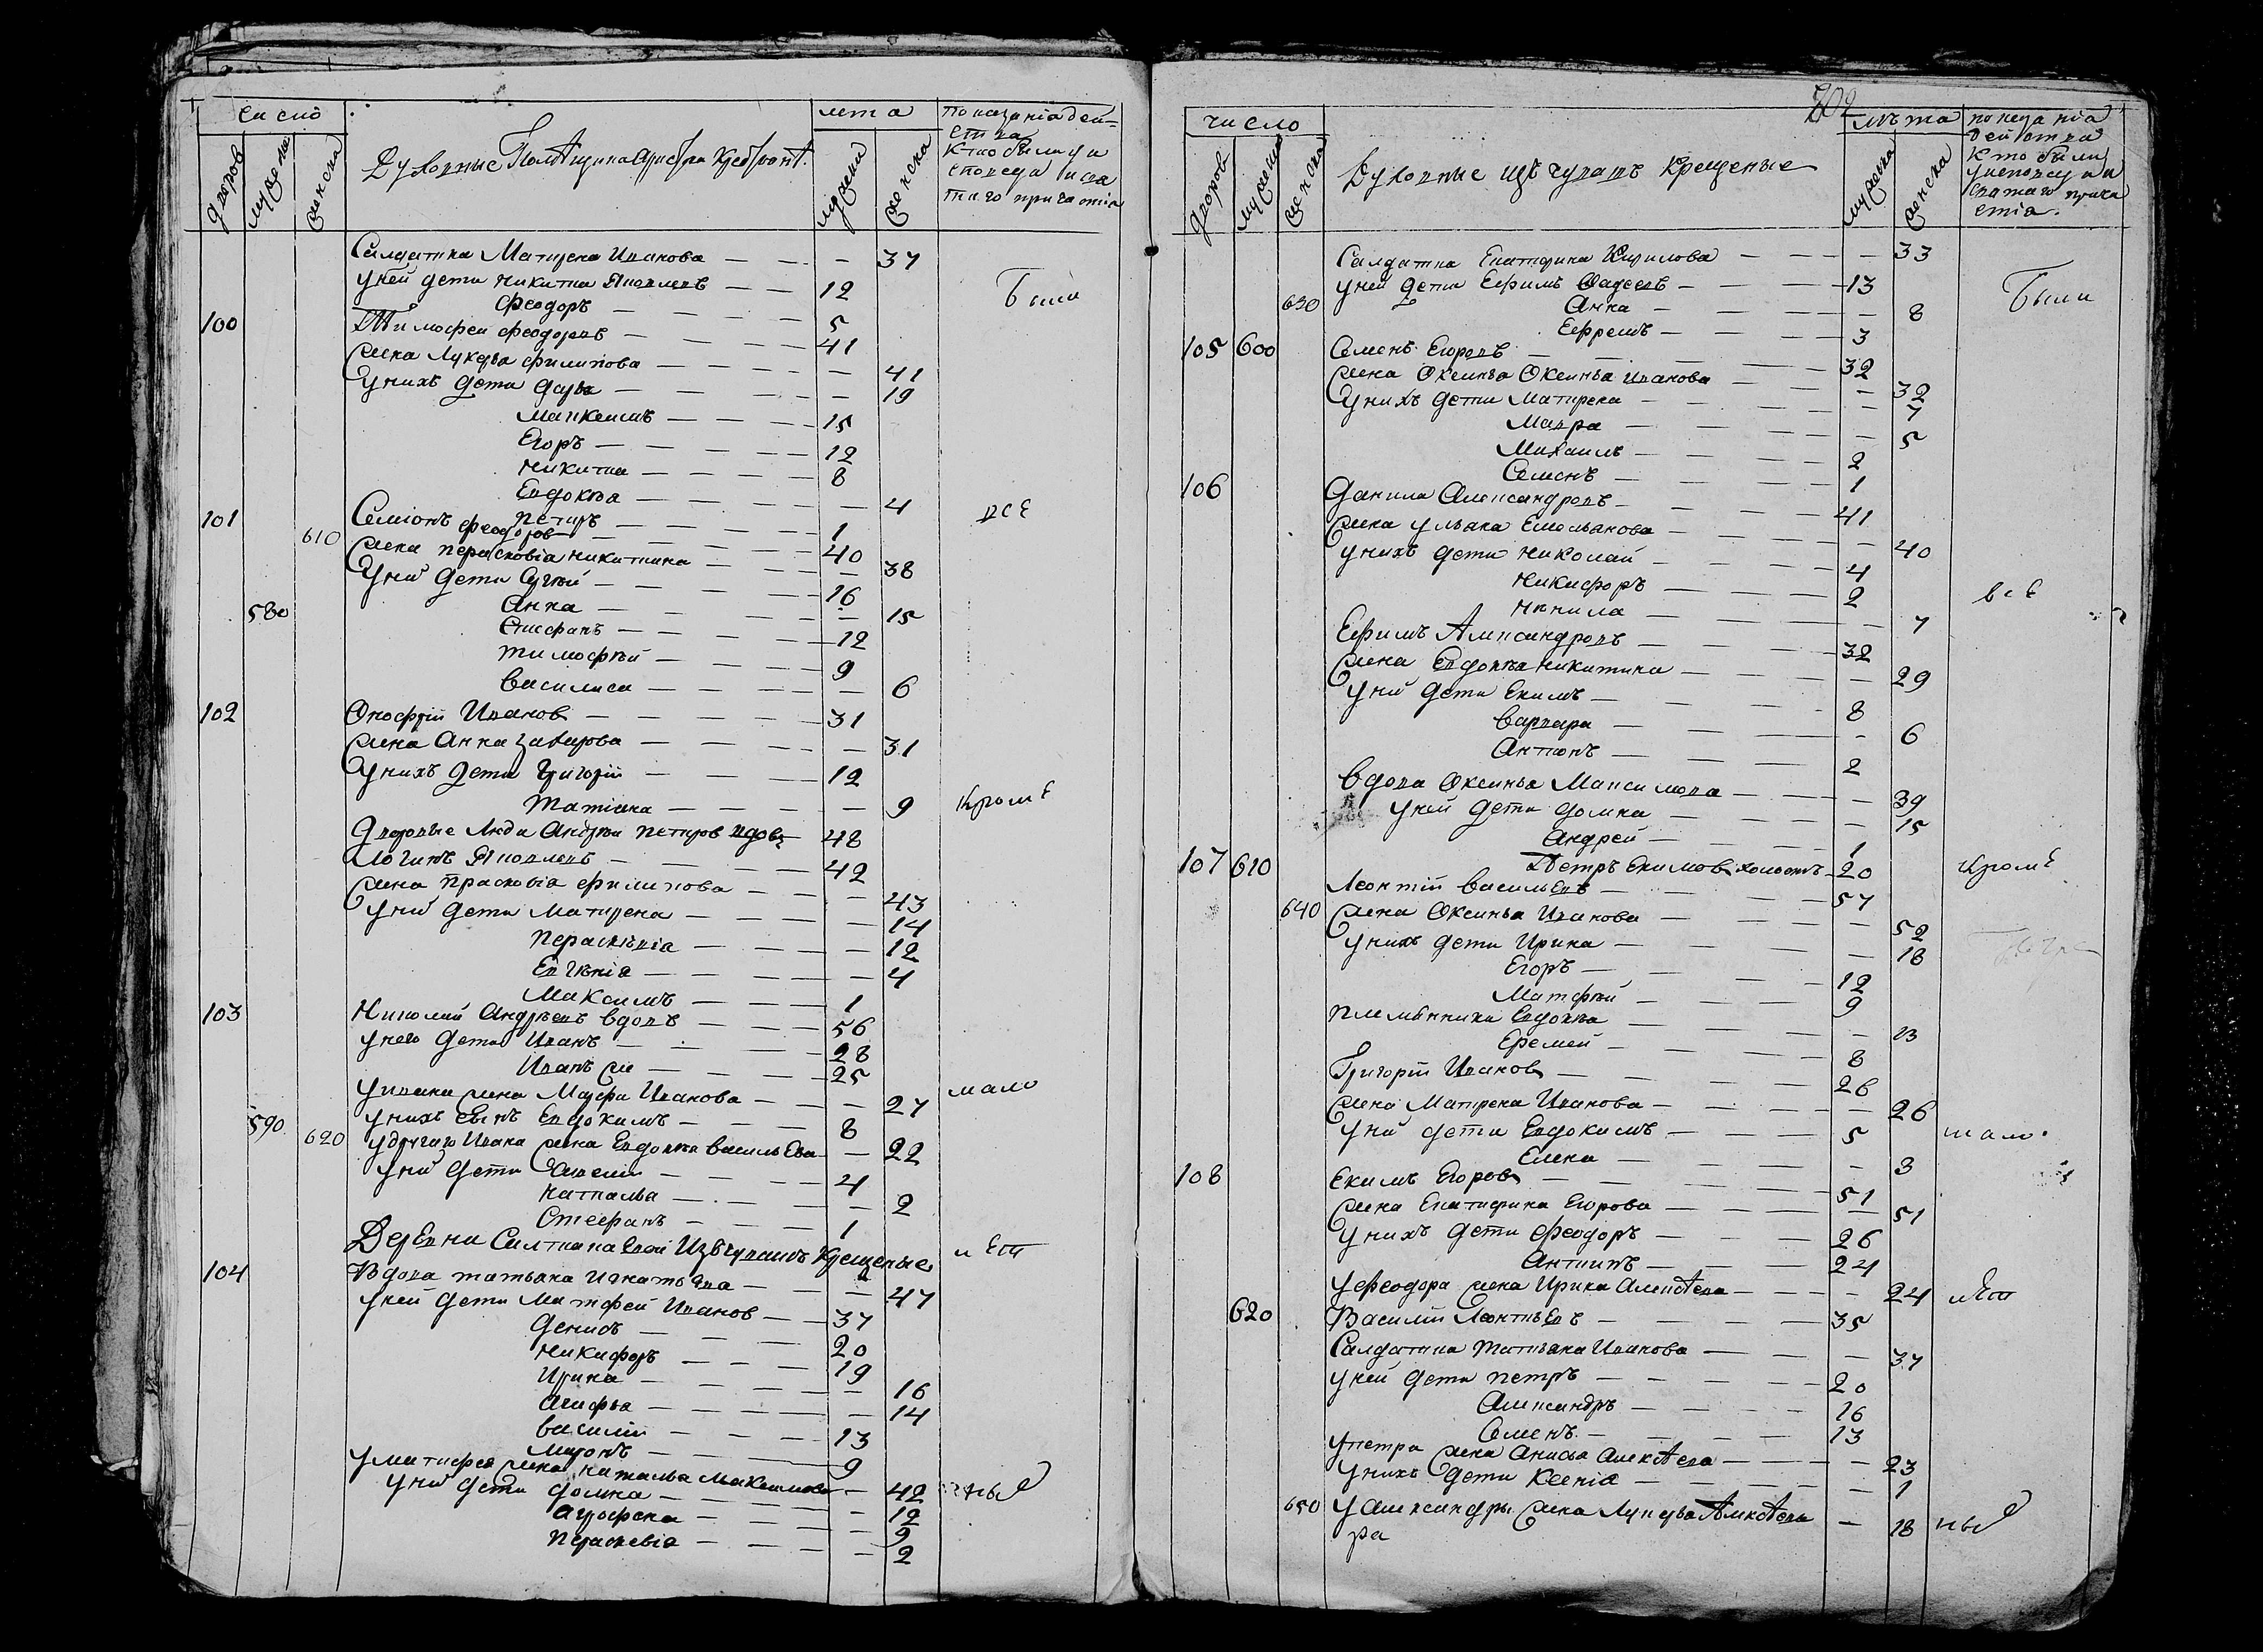 число
дворов
мужска
женска
Духовные Помѣщика
лета
мужска
женска
показанія дей=
ства
кто были у и
споведи и свя
таго причастія
Салдатка Матрена Иванова — — — 37
у ней дети Никита Яковлевъ — — 12
Феодоръ — — — — 5
Были
100 Тимофеи Феодоровъ — — — — 41
жена Лукерья Филипова — — — — 41
у нихъ дети Дарья — — — — 19
Мапкеимъ — — — 15
Егоръ — — — — 12
Никита — — — — 8
Евдокѣа — — — — 4
Петръ — — — — 1
все
101 Семіонъ Феодоровъ — — — 40
610 жена Перасковіа Никитина — — — 38
У нив дети Сергѣй — — — 16
580 Анна — — — — 15
Стефанъ — — — 12
Тимофѣй — — — 9
Василиса — — — — 6
102 Онофрій Иванов — — — 31
жена Анна Захарова — — — — 31
У нихъ дети Григорій — — — 12
Татіана — — — — 9
кромѣ
Дворовые Люди Андрѣи Петров вдовъ 48
Логинъ Яковлевъ — — — 42
жена Прасковіа Филипова — — — 43
У нив дети Матрена — — — 14
Пераскѣвіа — — — 12
Евгѣніа — — — 4
Максимъ — — — 1
103 Николай Андрѣевъ вдовъ — — — 56
у него дети Иванъ — — — 28
Иванъ же — — — 25
У Ивана жена Марфа Иванова — — — 27
мало
590 у нихъ сынъ Евдокимъ — — — 8
620 у другаго Ивана жена Евдокѣа Васильева — 22
у нив дети Савелій — — — 4
Наталья — — — 2
Стефанъ — — — 1
Деревни Салтанаевой Изъ чувашъ Крещеные
лѣт
104 Вдова Татьяна Игнатьева — — — 47
у ней дети Матфей Иванов — — 37
Денисъ — — — 20
Никифоръ — — — 19
Ирина — — — — 16
Агафья — — — — 14
Василій — — — 13
Миронъ — — — 9
у Матфея жена Наталья Максимова — 42
ныѲ
у нив дети Домна — — — 12
Агрофена — — — 9
Пераскевіа — — — 2
202
число
дворов
мужска
женска
Духовные изъ чувашъ крещеные
лѣта
мужска
женска
показаніа
действа
кто были
у исповеди и
святаго прича
стіа.
Салдатка Екатерина Кирилова — — — 33
у ней дети Ефимъ Фадеевъ — — 13
630 Анна — — — — 8
Ефремъ — — — 3
Были
105 600 Семенъ Егоровъ — — — 32
жена Оксинья Оксинья Иванова — — — 32
У нихъ дети Матрена — — — 7
Мавра — — — 5
Михаилъ — — — 2
Семенъ — — — 1
106 Данила Александровъ — — — 41
жена Ульяна Емельянова — — — 40
у нихъ дети Николай — — — 4
Никифоръ — — — 2
Ненила — — — 7
всѣ
Ефимъ Александровъ — — — 32
жена Евдокѣа Никитина — — — 29
у нив дети Екимъ — — — 8
Варвара — — — 6
Антонъ — — — 2
вдова Оксинья Максимова — — — 39
у ней дети Домна — — — 15
Андрей — — — 1
107 610 Петръ Екимовъ холостъ — 20
кромѣ
Леонтій Васильевъ — — — 57
640 жена Оксинья Иванова — — — 52
у нихъ дети Ирина — — — 18
Егоръ — — — 12
Матфѣй — — — 9
племянники Евдокѣа — — — 13
Еремей — — — 8
Григорій Иванов — — — 26
жена Матрена Иванова — — — 26
у нив дети Евдокимъ — — — 5
мало.
Елена — — — 3
108 Екимъ Егоров — — — 51
жена Екатерина Егорова — — — 51
У нихъ дети Феодоръ — — — 26
Антипъ — — — 24
у Феодора жена Ирина Алексѣева — — — 24
лѣт
620 Василій Леонтьевъ — — — 35
Салдатка Татьяна Иванова — — — 37
у ней дети Петръ — — — 20
Александръ — — — 16
Семенъ — — — 13
у Петра жена Анисья Алексѣева — — — 23
у нихъ дети Ксеніа — — — 1
650 у Александра жена Лукерья Алексѣева — 18
ра
ныѲ